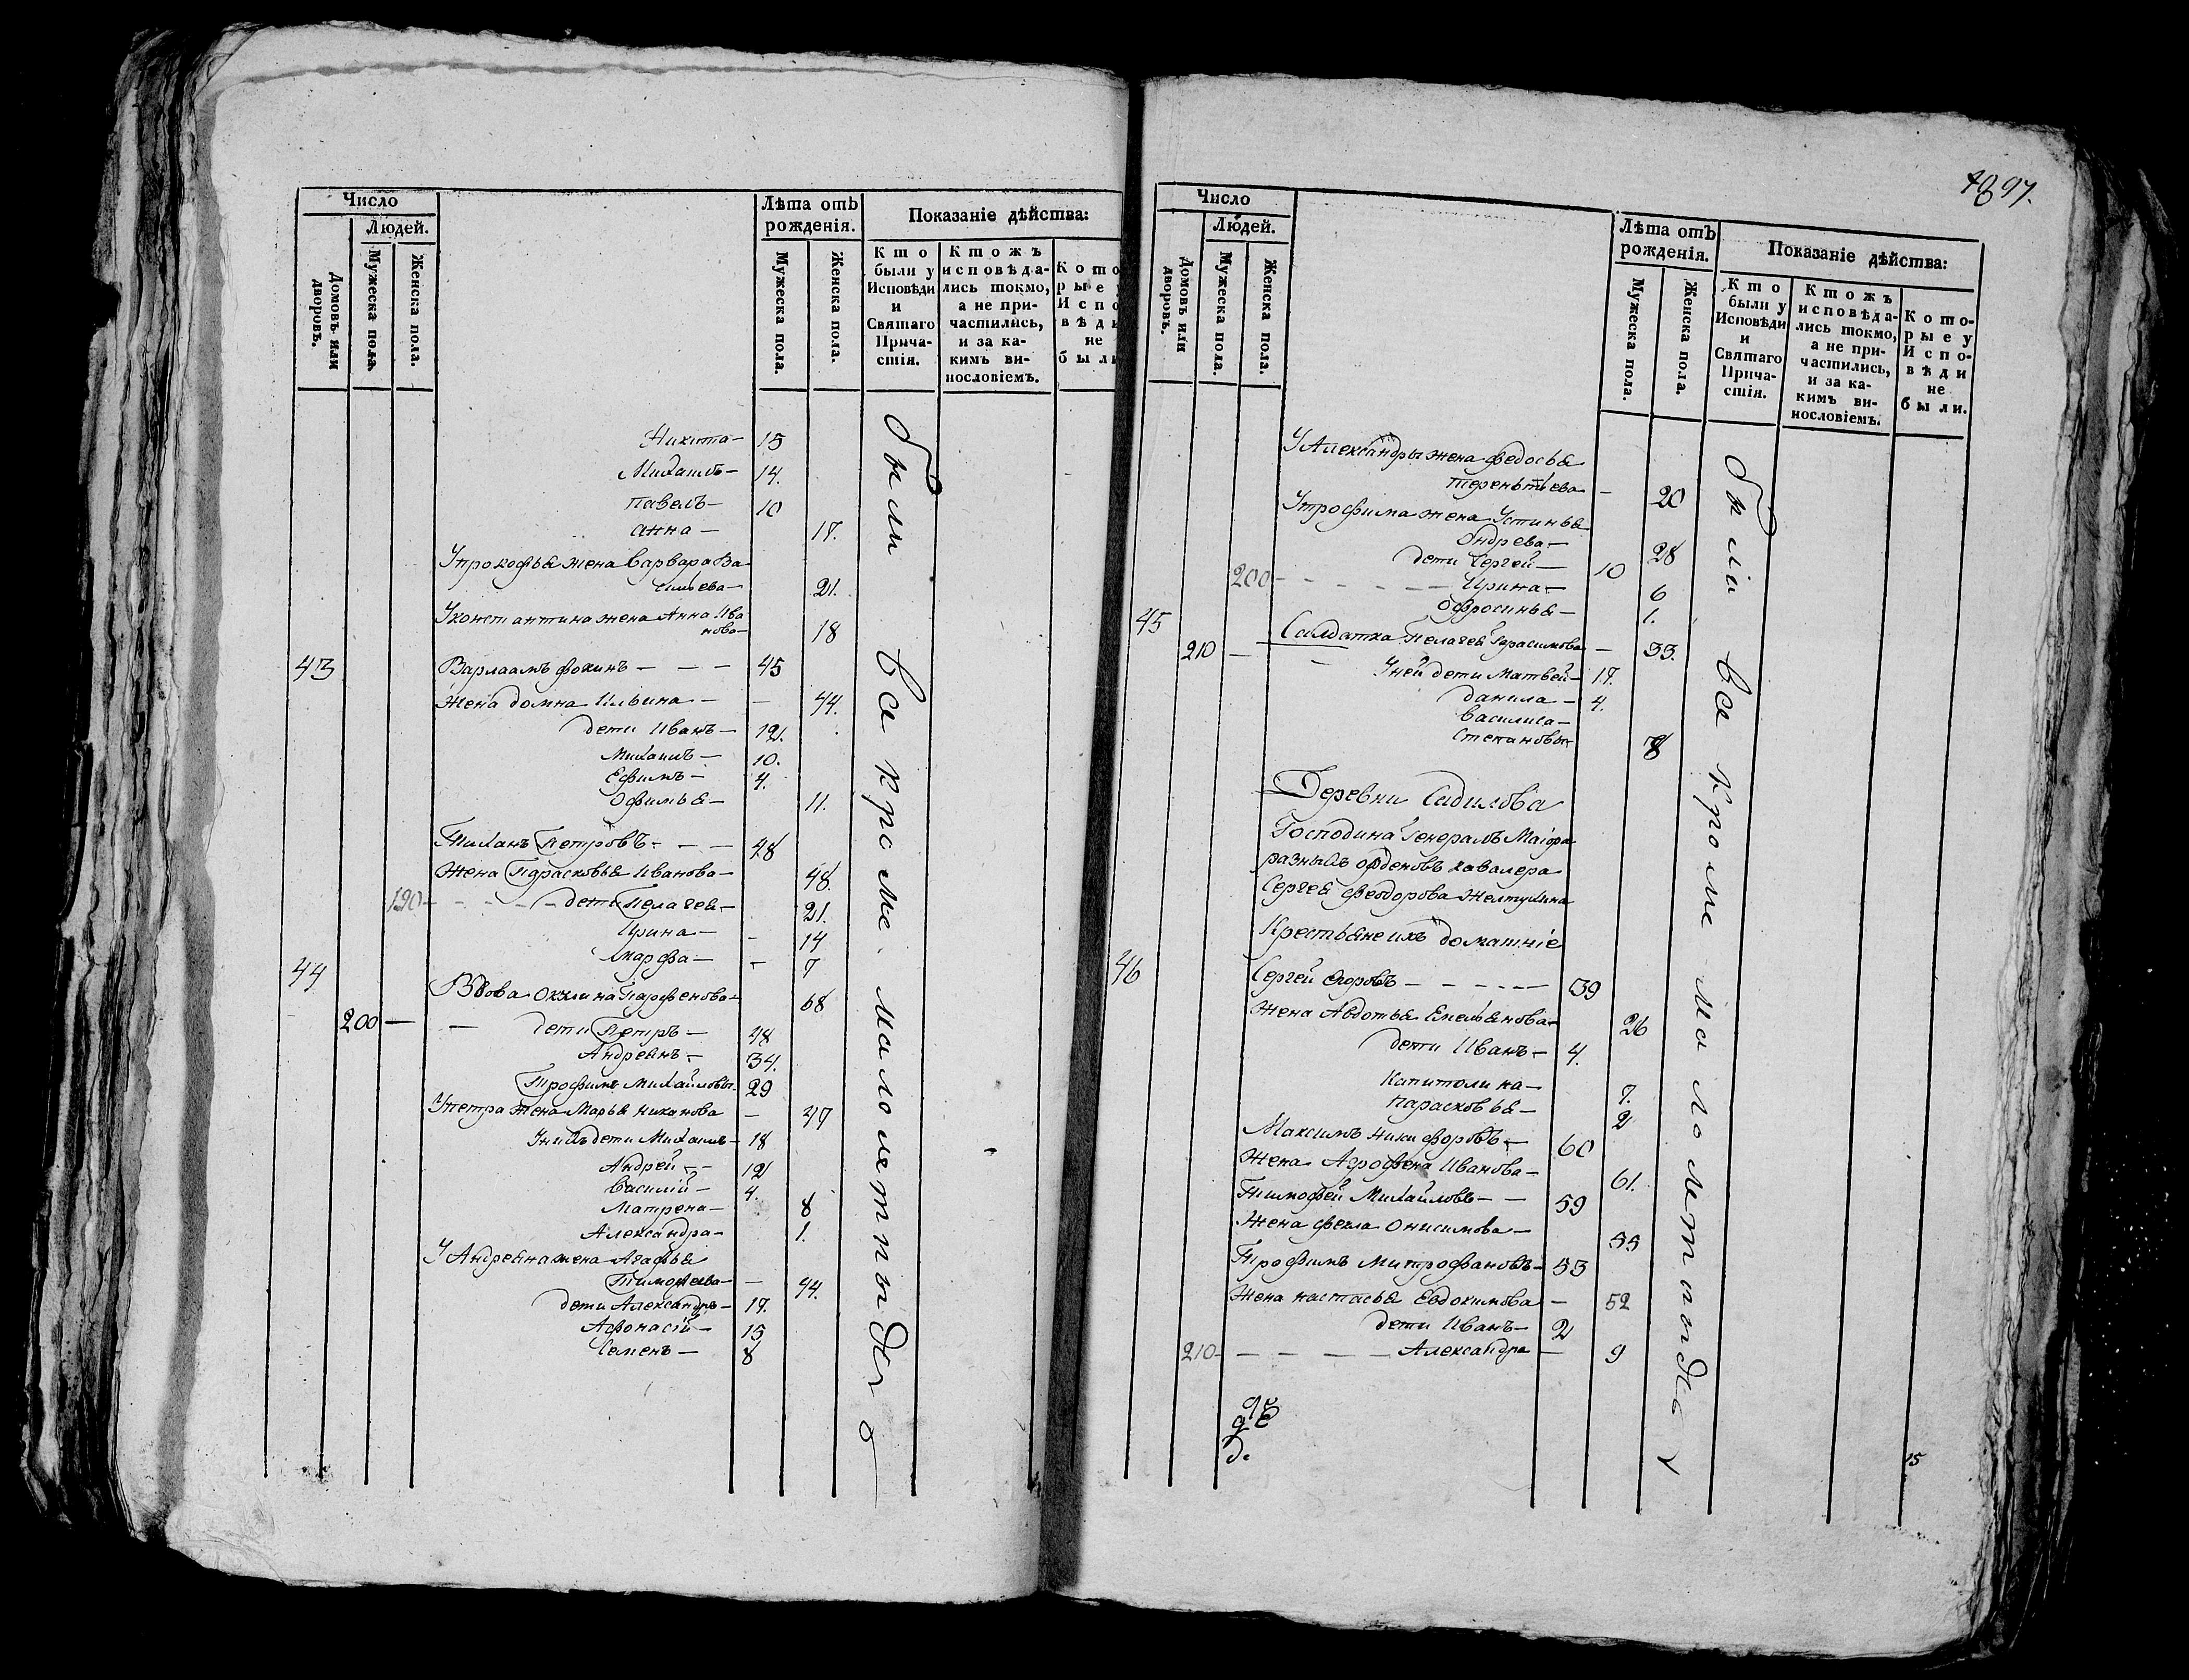 Число
Людей.
Домовъ или дворовъ.
Мужеска пола.
Женска пола.
Лѣта отъ рожденія.
Мужеска пола.
Женска пола.
Показаніе дѣйства:
Кто были у Исповѣди и Святаго Причастія.
Ктожъ исповѣдались токмо, а не причастились, и за какимъ винословіемъ.
Кото
рые
Испо
вѣди
не
были
Никита — 15
Михаилъ — 14.
Павелъ — 10
Анна — 17.
У прокофья жена Варвара Ва
сильева — 21.
У константина жена Анна Ива
нова — 18
43 Варлаамъ фокинъ — — — 45
Жена домна Ильина — — 44.
дети Иванъ — 12.
Михаилъ — 10.
Ефимъ — 4.
Офимья — 11.
Тиханъ Петровъ — — — 48
Жена Парасковья Иванова — 48.
190 — — — — дети Пелагея — 21.
Ирина — — 14
Марфа — — 7
44
Вдова Окулина Парфенова — 68
200 — — дети Петръ — 48
Андреянъ — 34.
Трофимъ Михайловы — 29
У петра жена Марья никанова — 47
У нихъ дети Михаилъ — 18
Андрей — — 12
Василій — 4.
Матрена — 8
Александра — 1.
У Андреяна жена Агафья
Тимофеева — — 44.
дети Александръ — 17.
Афонасій — 15
Семенъ — 8
были все кроме малолетныхъ
1897.
Число
Людей.
Домовъ или дворовъ.
Мужеска пола.
Женска пола.
Лѣта отъ рожденія.
Мужеска пола.
Женска пола.
Показаніе дѣйства:
Кто были у Исповѣди и Святаго Причастія.
Ктожъ исповѣдались токмо, а не причастились, и за какимъ винословіемъ.
Которые у Исповѣди не были.
У Александры жена Федосья
терентьева — 20
У трофима жена Устинья
Андрева — 28
дети Сергей — 10
200 — — — — — — Ирина — 6
Офросинья — 1.
45
210 — Салдатка Пелагея Герасимова — 33.
— У ней дети Матвей — 17.
данила — 4.
Василиса —
Степановы 8
Деревни Садилова
Господина Генералъ Маіора
разныхъ орденовъ кавалера
Сергея Феодорова Желтухина
Крестьяне ихъ домашніе
46 Сергей Егоровъ — — — — — 39
Жена Авдотья Емельянова — 26
дети Иванъ — 4.
Капитолина — 7.
Парасковья — 2
Максимъ Никифоровъ — 60
Жена Агрофена Иванова — 61.
Тимофей Михайловъ — — 59
Жена фекла Онисимова — 55
Трофимъ Митрофановъ — 53
Жена настасья Евдокимова — 52
дети Иванъ — 2
210 — — — — — Александра — 9
были все кроме малолетныхъ
15